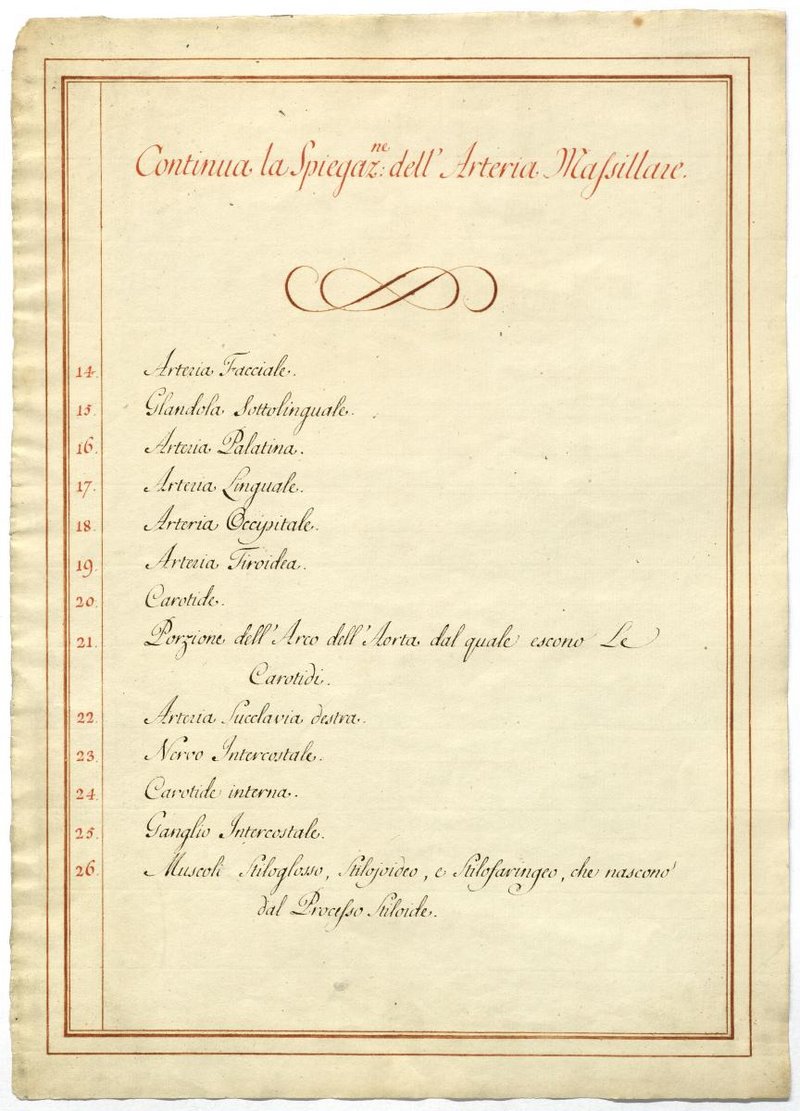 Continua la Spiegaz.ne: dell' Arteria Maſsillare.
14. Arteria Facciale.
15. Glandola Sottolinguale.
16. Arteria Palatina.
17. Arteria Linguale.
18. Arteria Occipitale.
19. Arteria Tiroidea.
20. Carotide.
21. Porzione dell' Arco dell' Aorta dal quale escono Le
Carotidi.
22. Arteria Succlavia destra.
23. Nervo Intercostale.
24. Carotide interna.
25. Ganglio Intercostale.
26. Muscoli Stiloglosso, Stilojoideo, e Stilofaringeo, che nascono
dal Proceſso Stiloide.